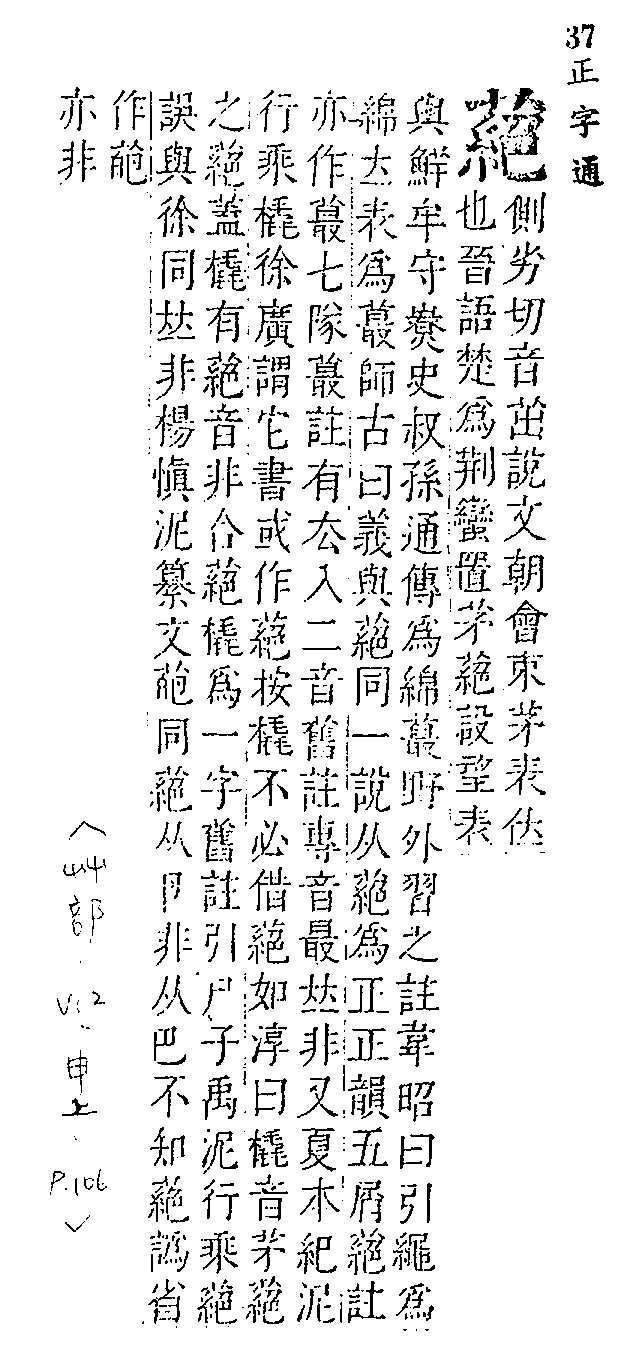 37正字通
蕝
側劣切音茁說文朝會束茅表位
也晉語楚爲荆蠻置茅蕝設望表
與鮮牟守燎史叔孫通傳爲綿蕞野外習之註韋昭曰引繩爲
綿立表爲蕞師古曰義與蕝同一說从蕝爲正正韻五屑蕝註
亦作蕞七隊蕞註有去入二音舊註專音最𠀤非又夏本紀泥
行乘橇徐廣謂它書或作蕝按橇不必借蕝如淳曰橇音茅蕝
之蕝蓋橇有蕝音非合蕝橇爲一字舊註引尸子禹泥行乘蕝
誤與徐同𠀤非楊愼泥纂文葩同蕝从卪非从巴不知蕝譌省
作葩
亦非
艸部.V.2.申上.P.106